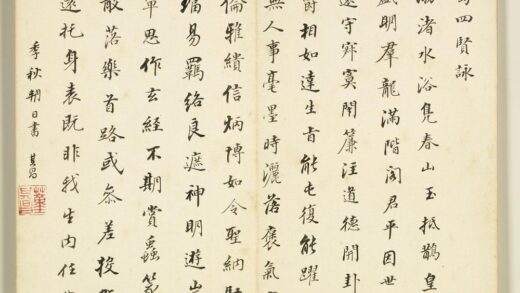 四賢詠
渚水浴鳧春山玉抵鵲皇
盛明羣龍滿階閣君平因世
還守寂寞閉簾注道德開卦
爵相如達生旨能屯復能躍
無人事毫墨時灑落褒氣
倫雅繢信炳博如令聖納賢
璫易羈絡良遮神明遊豈
覃思作玄經不期賞蟲篆
散落樂首路或參差投
遠托身表既非我生內任
季秋朔日書 其昌